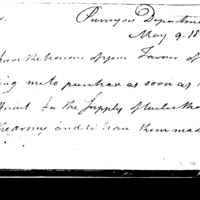 Purveyors Departmen
May 9. 18
have the honour of your Favour of
ing me to purchase as soon as
ficient for the Supply of
the army and to have them mad